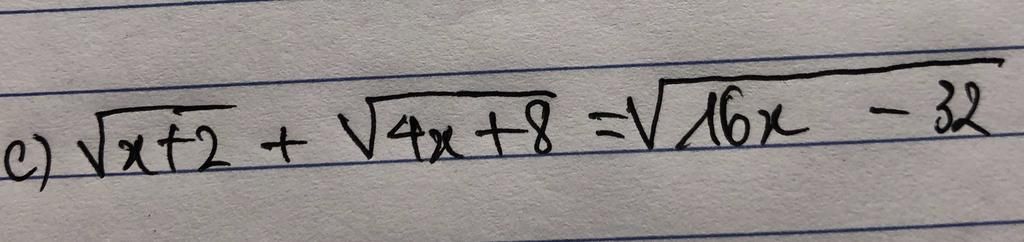 c) √x+2 + √4x+8 = √16x - 32